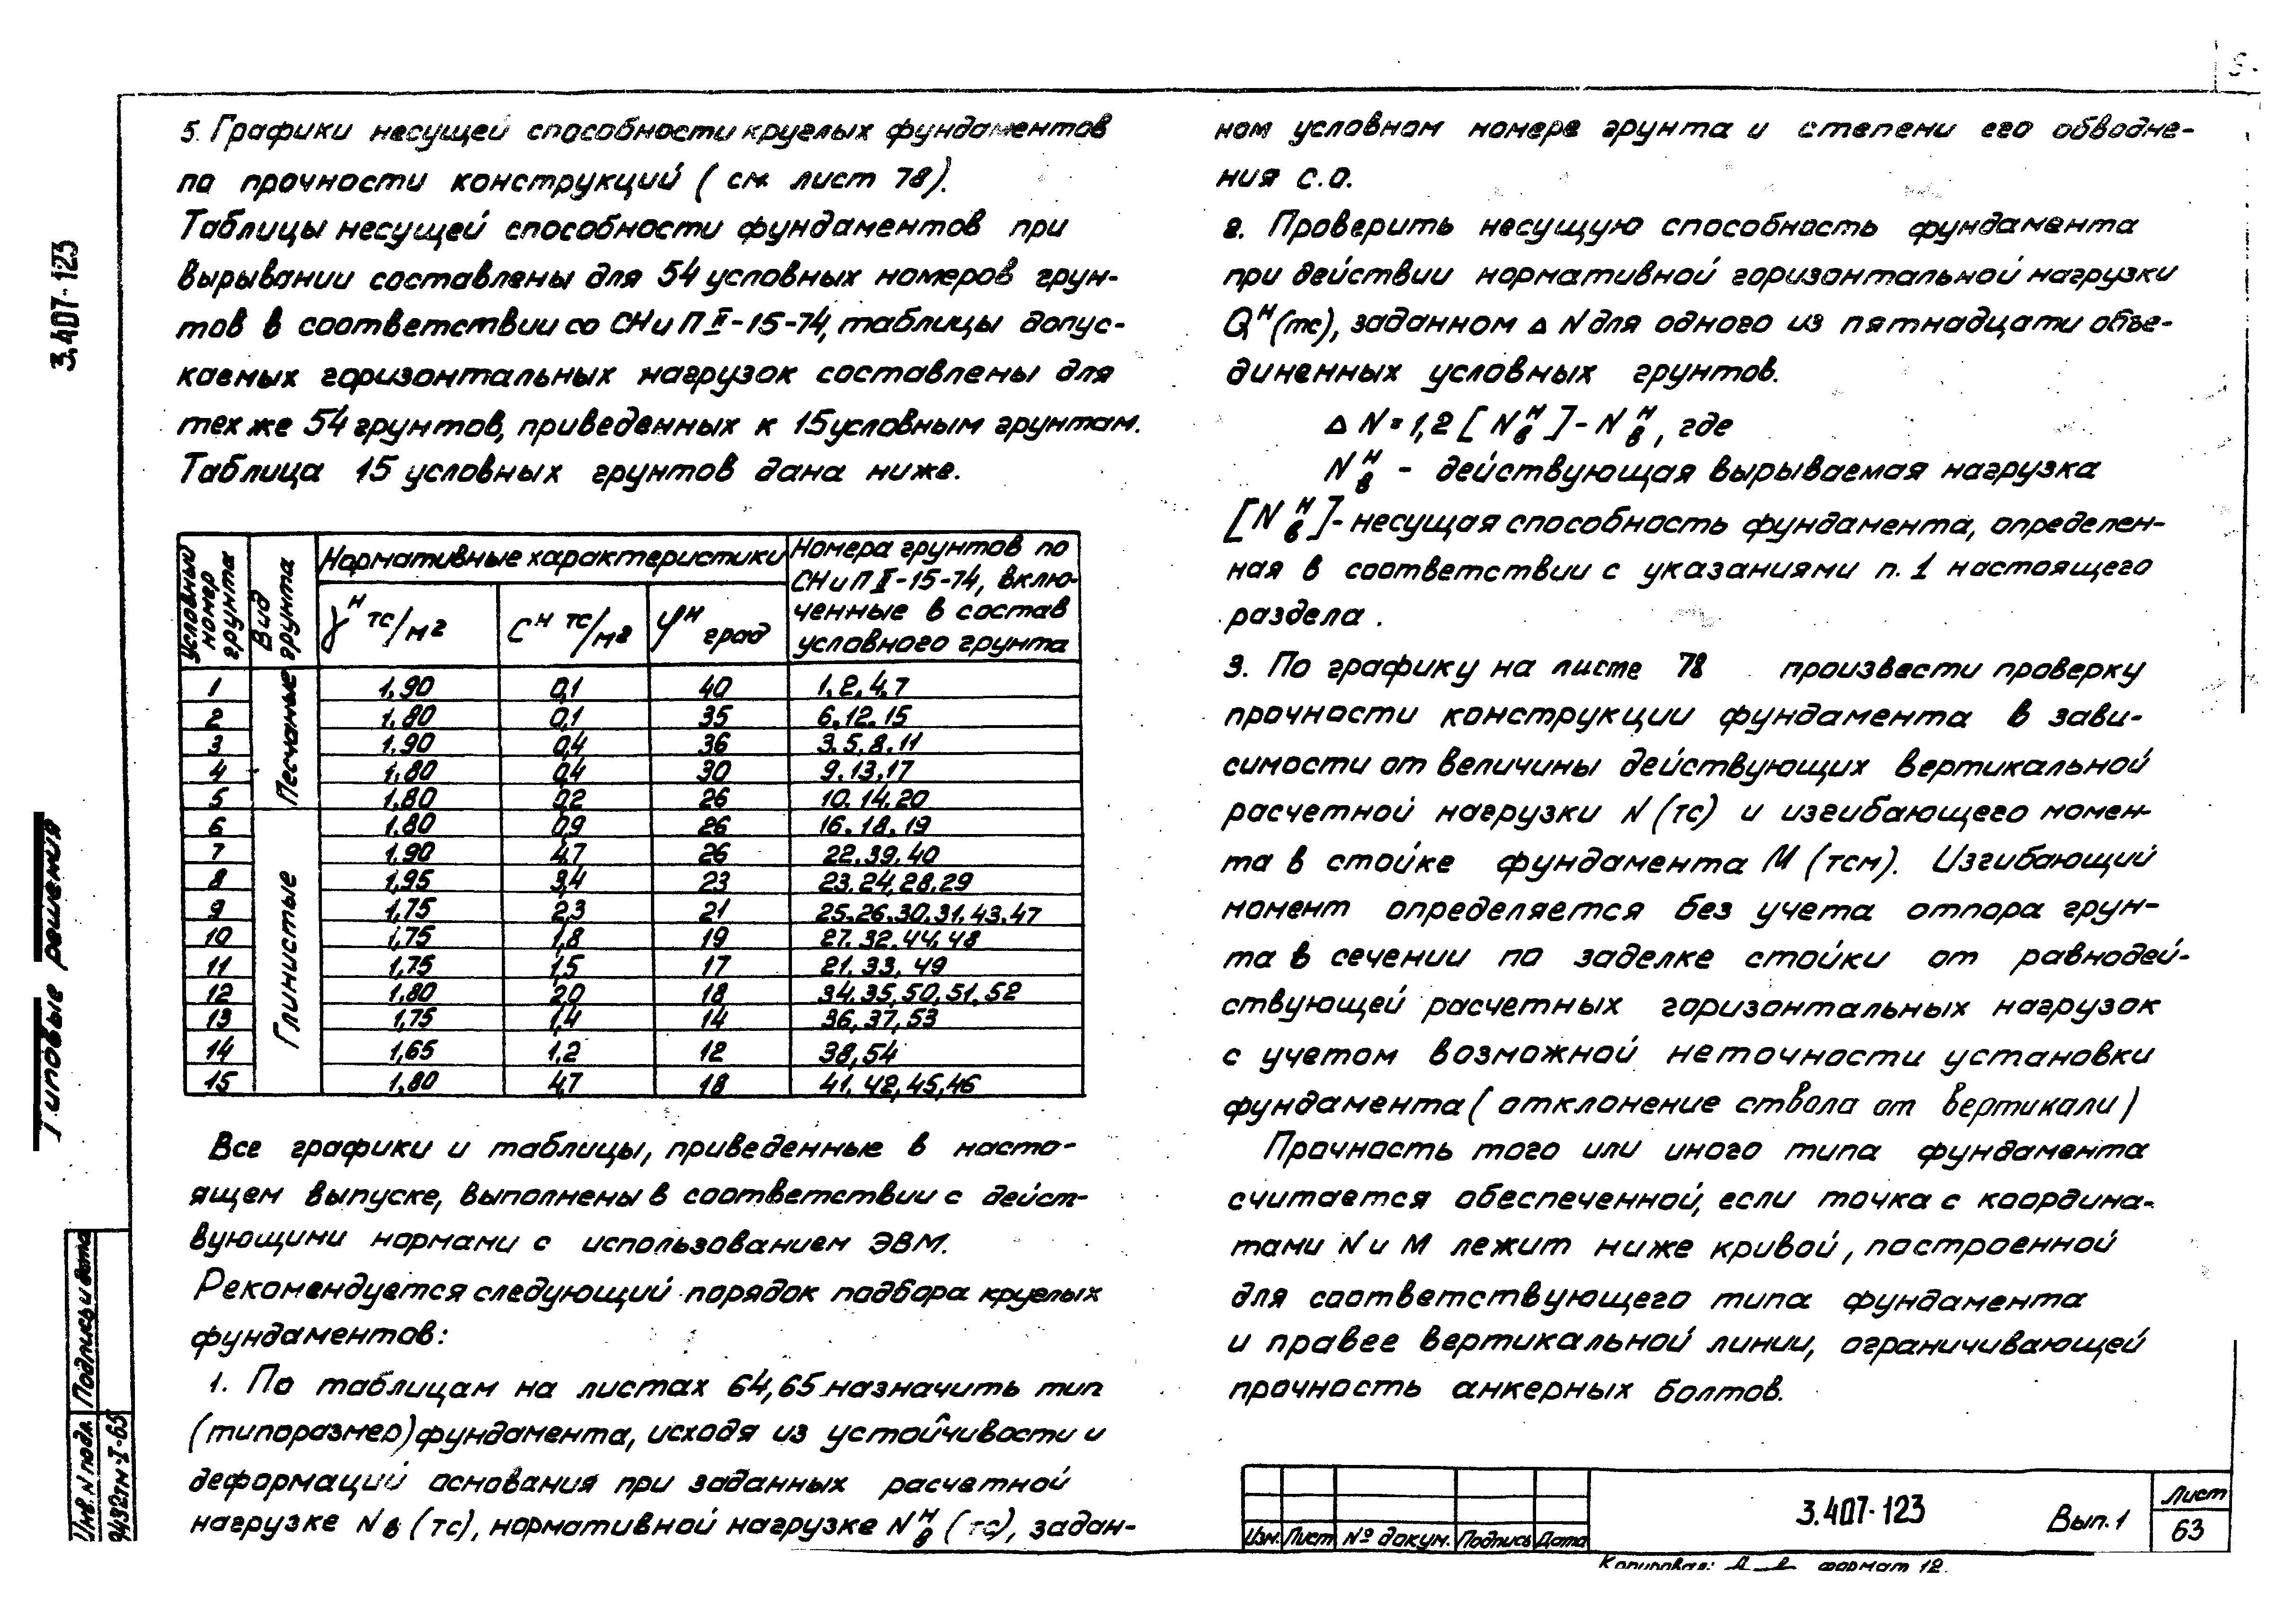 5. Графики несущей способности круглых фундаментов
по прочности конструкций ( см. лист 78).
Таблицы несущей способности фундаментов при
вырывании составлены для 54 условных номеров грун-
тов в соответствии со СНиП II-15-74, таблицы допус-
каемых горизонтальных нагрузок составлены для
тех же 54 грунтов, приведенных к 15 условным грунтам.
Таблица 15 условных грунтов дана ниже.
Условный номер грунта | Вид грунта | Нормативные характеристики | Номера грунтов по СНиП II-15-74, включенные в состав условного грунта
γн тс/м2 | Сн тс/м2 | φн град
Песчаные
1 1,90 0,1 40 1, 2, 4, 7
2 1,80 0,1 35 6, 12, 15
3 1,90 0,4 36 3, 5, 8, 11
4 1,80 0,4 30 9, 13, 17
5 1,80 0,2 26 10, 14, 20
Глинистые
6 1,80 0,9 26 16, 18, 19
7 1,90 4,7 26 22, 39, 40
8 1,95 3,4 23 23, 24, 28, 29
9 1,75 2,3 21 25, 26, 30, 31, 43, 47
10 1,75 1,8 19 27, 32, 44, 48
11 1,75 1,5 17 21, 33, 49
12 1,80 2,0 18 34, 35, 50, 51, 52
13 1,75 1,4 14 36, 37, 53
14 1,65 1,2 12 38, 54
15 1,80 4,7 18 41, 42, 45, 46
Все графики и таблицы, приведенные в насто-
ящем выпуске, выполнены в соответствии с дейст-
вующими нормами с использованием ЭВМ.
Рекомендуется следующий порядок подбора круглых
фундаментов:
1. По таблицам на листах 64, 65 назначить тип
(типоразмер) фундамента, исходя из устойчивости и
деформаций основания при заданных расчетной
нагрузке Nв (тс), нормативной нагрузке Nнв (тс), задан-
ном условном номере грунта и степени его обводне-
ния С.О.
2. Проверить несущую способность фундамента
при действии нормативной горизонтальной нагрузки
Qн (тс), заданном Δ N для одного из пятнадцати объе-
диненных условных грунтов.
Δ N = 1,2 [ Nнв ] - Nнв , где
Nнв - действующая вырываемая нагрузка
[Nнв] - несущая способность фундамента, определен-
ная в соответствии с указаниями п. 1 настоящего
раздела .
3. По графику на листе 78 произвести проверку
прочности конструкции фундамента в зави-
симости от величины действующих вертикальной
расчетной нагрузки N (тс) и изгибающего момен-
та в стойке фундамента М (тсм). Изгибающий
момент определяется без учета отпора грун-
та в сечении по заделке стойки от равнодей-
ствующей расчетных горизонтальных нагрузок
с учетом возможной неточности установки
фундамента ( отклонение ствола от вертикали )
Прочность того или иного типа фундамента
считается обеспеченной, если точка с координа-
тами N и М лежит ниже кривой, построенной
для соответствующего типа фундамента
и правее вертикальной линии, ограничивающей
прочность анкерных болтов.
Изм. Лист № докум. Подпись Дата
3.407-123
Вып. 1
Лист
63
Копировал:
формат 12.
3.407-123
Типовые решения
Подпись и дата
Инв. N подл.
9432тм-I-65